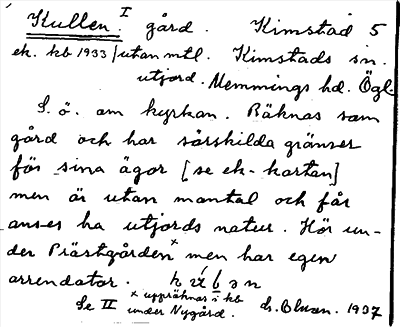 Kullen. I gård. Kimstad 5
ek. kb 1933 / utan mtl. Kimstads sn.
utjord. Memmings hd. Ögl.
S.ö. om kyrkan. Räknas som
gård och har särskilda gränser
för sina ägor [se ek-kartan]
men är utan mantal och får
anses ha utjords natur. Hör un-
der Prästgården x men har egen
arrendator.
x uppräknas i kb
Se II under Nygård. 1937